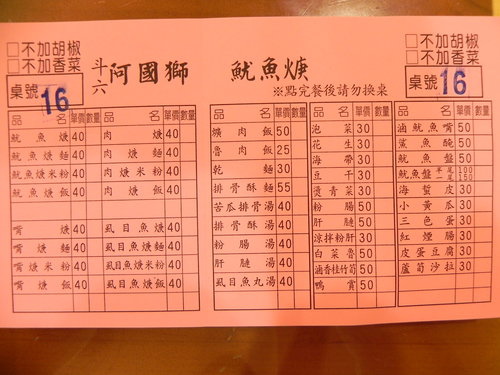 □不加胡椒
□不加香菜
桌號 16
斗六 阿國獅 魷魚焿
※點完餐後請勿換桌
□不加胡椒
□不加香菜
桌號 16
品名 單價 數量 品名 單價 數量
魷魚焿 40 肉焿 40
魷魚焿麵 40 肉焿麵 40
魷魚焿米粉 40 肉焿米粉 40
魷魚焿飯 40 肉焿飯 40
嘴焿 40 虱目魚焿 40
嘴焿麵 40 虱目魚焿麵 40
嘴焿米粉 40 虱目魚焿米粉 40
嘴焿飯 40 虱目魚焿飯 40
品名 單價 數量
爌肉飯 50
魯肉飯 25
乾麵 30
排骨酥麵 55
苦瓜排骨湯 40
排骨酥湯 40
粉腸湯 40
肝腱湯 40
虱目魚丸湯 40
品名 單價 數量
泡菜 30
花生 30
海帶 30
豆干 30
燙青菜 30
粉腸 50
肝腱 50
涼拌粉肝 30
白菜魯 50
滷香桂竹筍 50
鴨賞 50
品名 單價 數量
滷魷魚嘴 50
鯊魚醃 50
魷魚盤 50
魷魚盤 半尾 100 一尾 150
海蜇皮 30
小黃瓜 30
三色蛋 30
紅煙腸 30
皮蛋豆腐 30
蘆筍沙拉 30